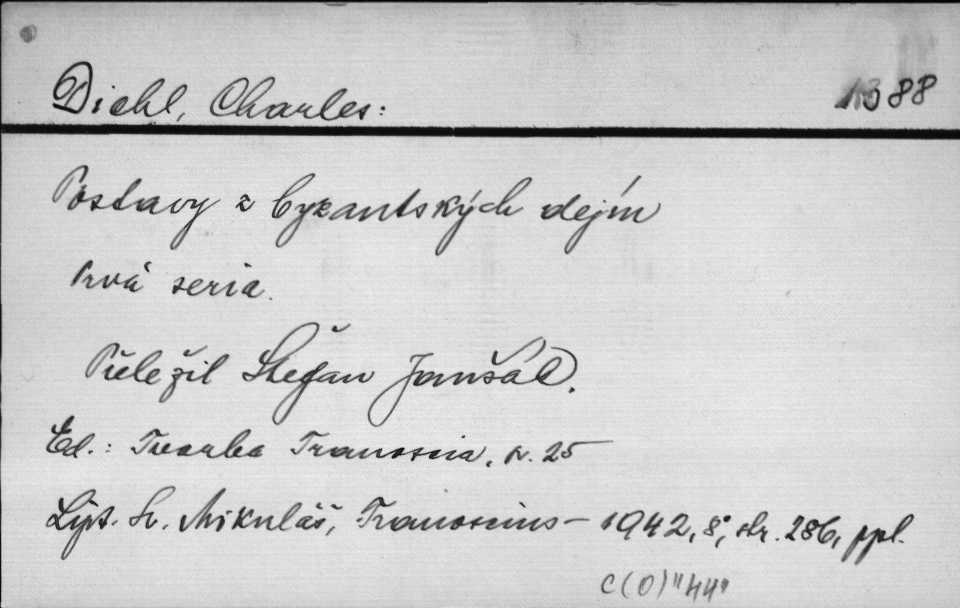 Diehl, Charles: 1388
Postavy z byzantských dejín
Prvá seria.
Přeložil Štefan Janšák.
Ed.: Tvorba Tranoscia, č. 25
Lipt. Sv. Mikuláš, Tranoscius – 1942, 8°, str. 286, ppl.
C(O)"44"